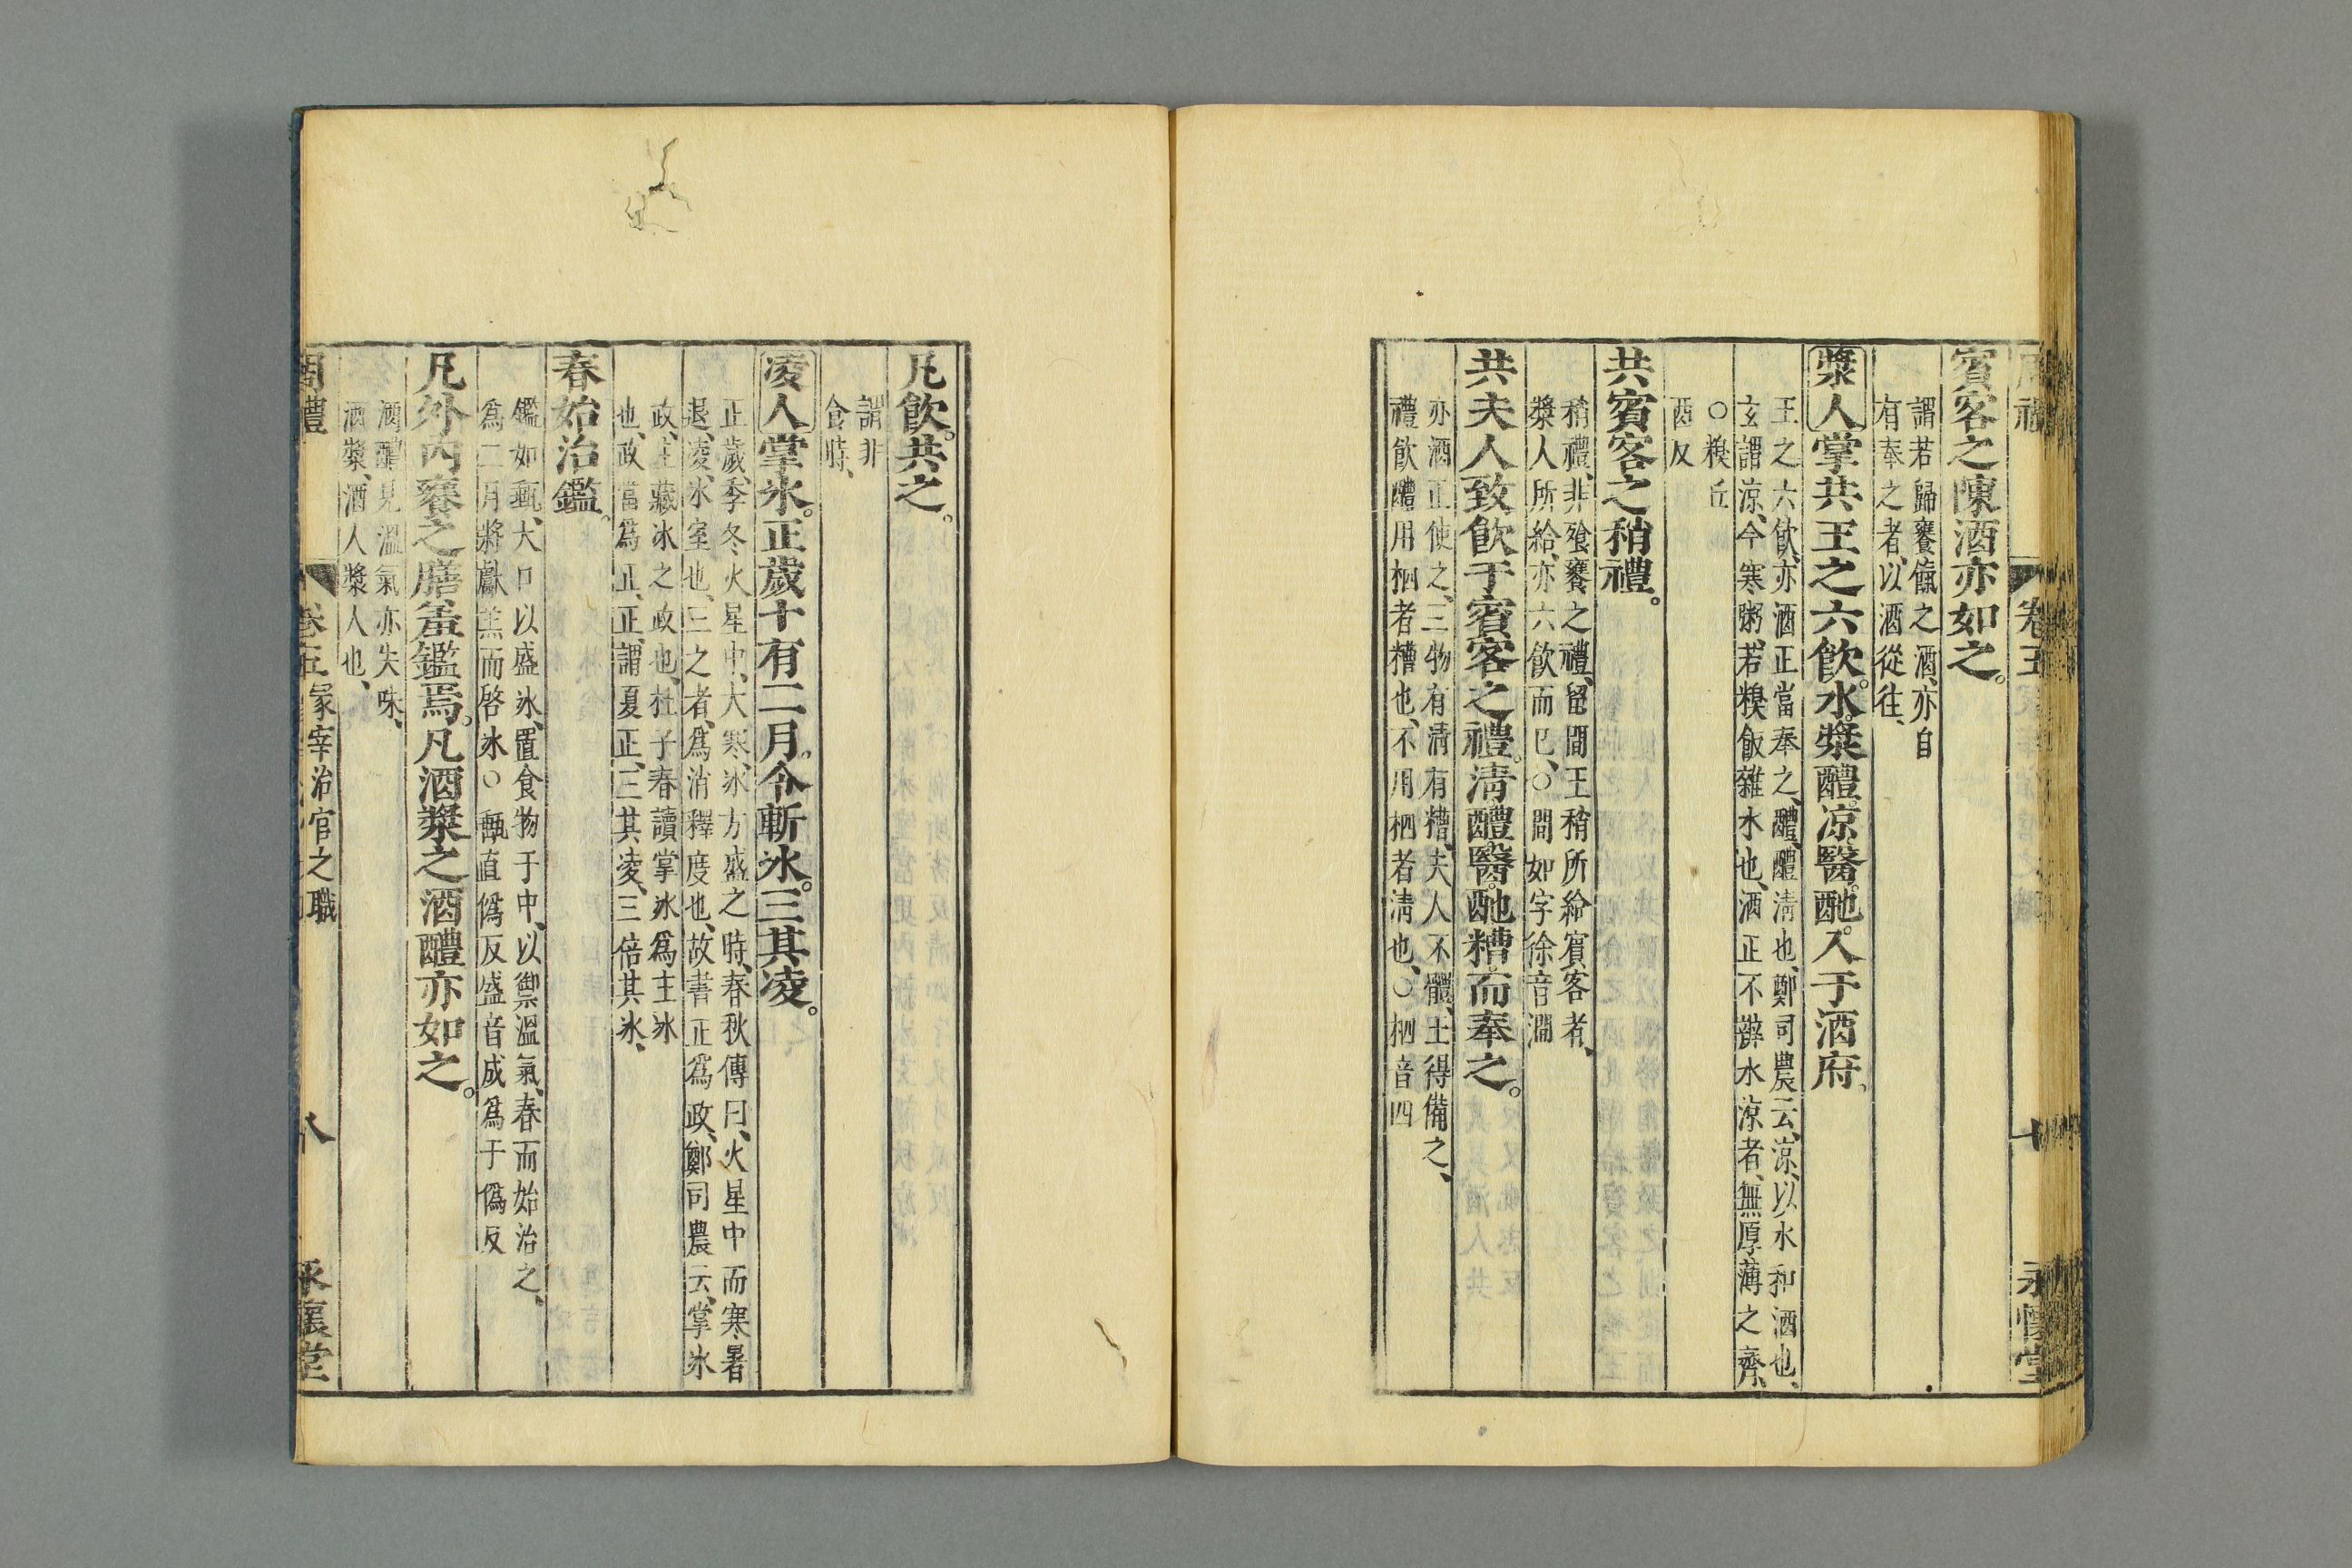 賓客之陳酒亦如之。
謂若歸饔餼之酒、亦自
有奉之者、以酒從往、
漿人掌共王之六飲。水。漿。醴。涼。醫。酏。入于酒府。
王之六飲、亦酒正當奉之、醴、醴清也、鄭司農云、涼、以水和酒也、
玄謂涼、今寒粥、若糗飯雜水也、酒正不辨水涼者、無厚薄之齊、
○糗丘
酉反
共賓客之稍禮。
稍禮、非飱饔之禮、留間王稍所給賓客者、
漿人所給、亦六飲而已、○間如字徐音澗
共夫人致飲于賓客之禮。清醴醫。酏糟而奉之。
亦酒正使之、三物有清有糟、夫人不體、王得備之、
禮飲醴用柶者糟也、不用柶者清也、○柶音四
凡飲。共之。
謂非
食時、
凌人掌冰。正歲十有二月。令斬冰。三其凌。
正歲、季冬、火星中、大寒、冰方盛之時、春秋傳曰、火星中而寒暑
退、凌、冰室也、三之者、爲消釋度也、故書正爲政、鄭司農云、掌冰
政、主藏冰之政也、杜子春讀掌冰爲主冰
也、政當爲正、正、謂夏正、三其凌、三倍其冰、
春始治鑑。
鑑如甀、大口以盛冰、置食物于中、以禦溫氣、春而始治之、
爲二月將獻羔而啓冰○甀直僞反盛音成爲于僞反
凡外內饔之膳羞鑑焉。凡酒漿之酒醴亦如之。
酒醴見溫氣亦失味、
酒漿、酒人漿人也、
周禮
卷五冢宰治官之職
八
永懷堂